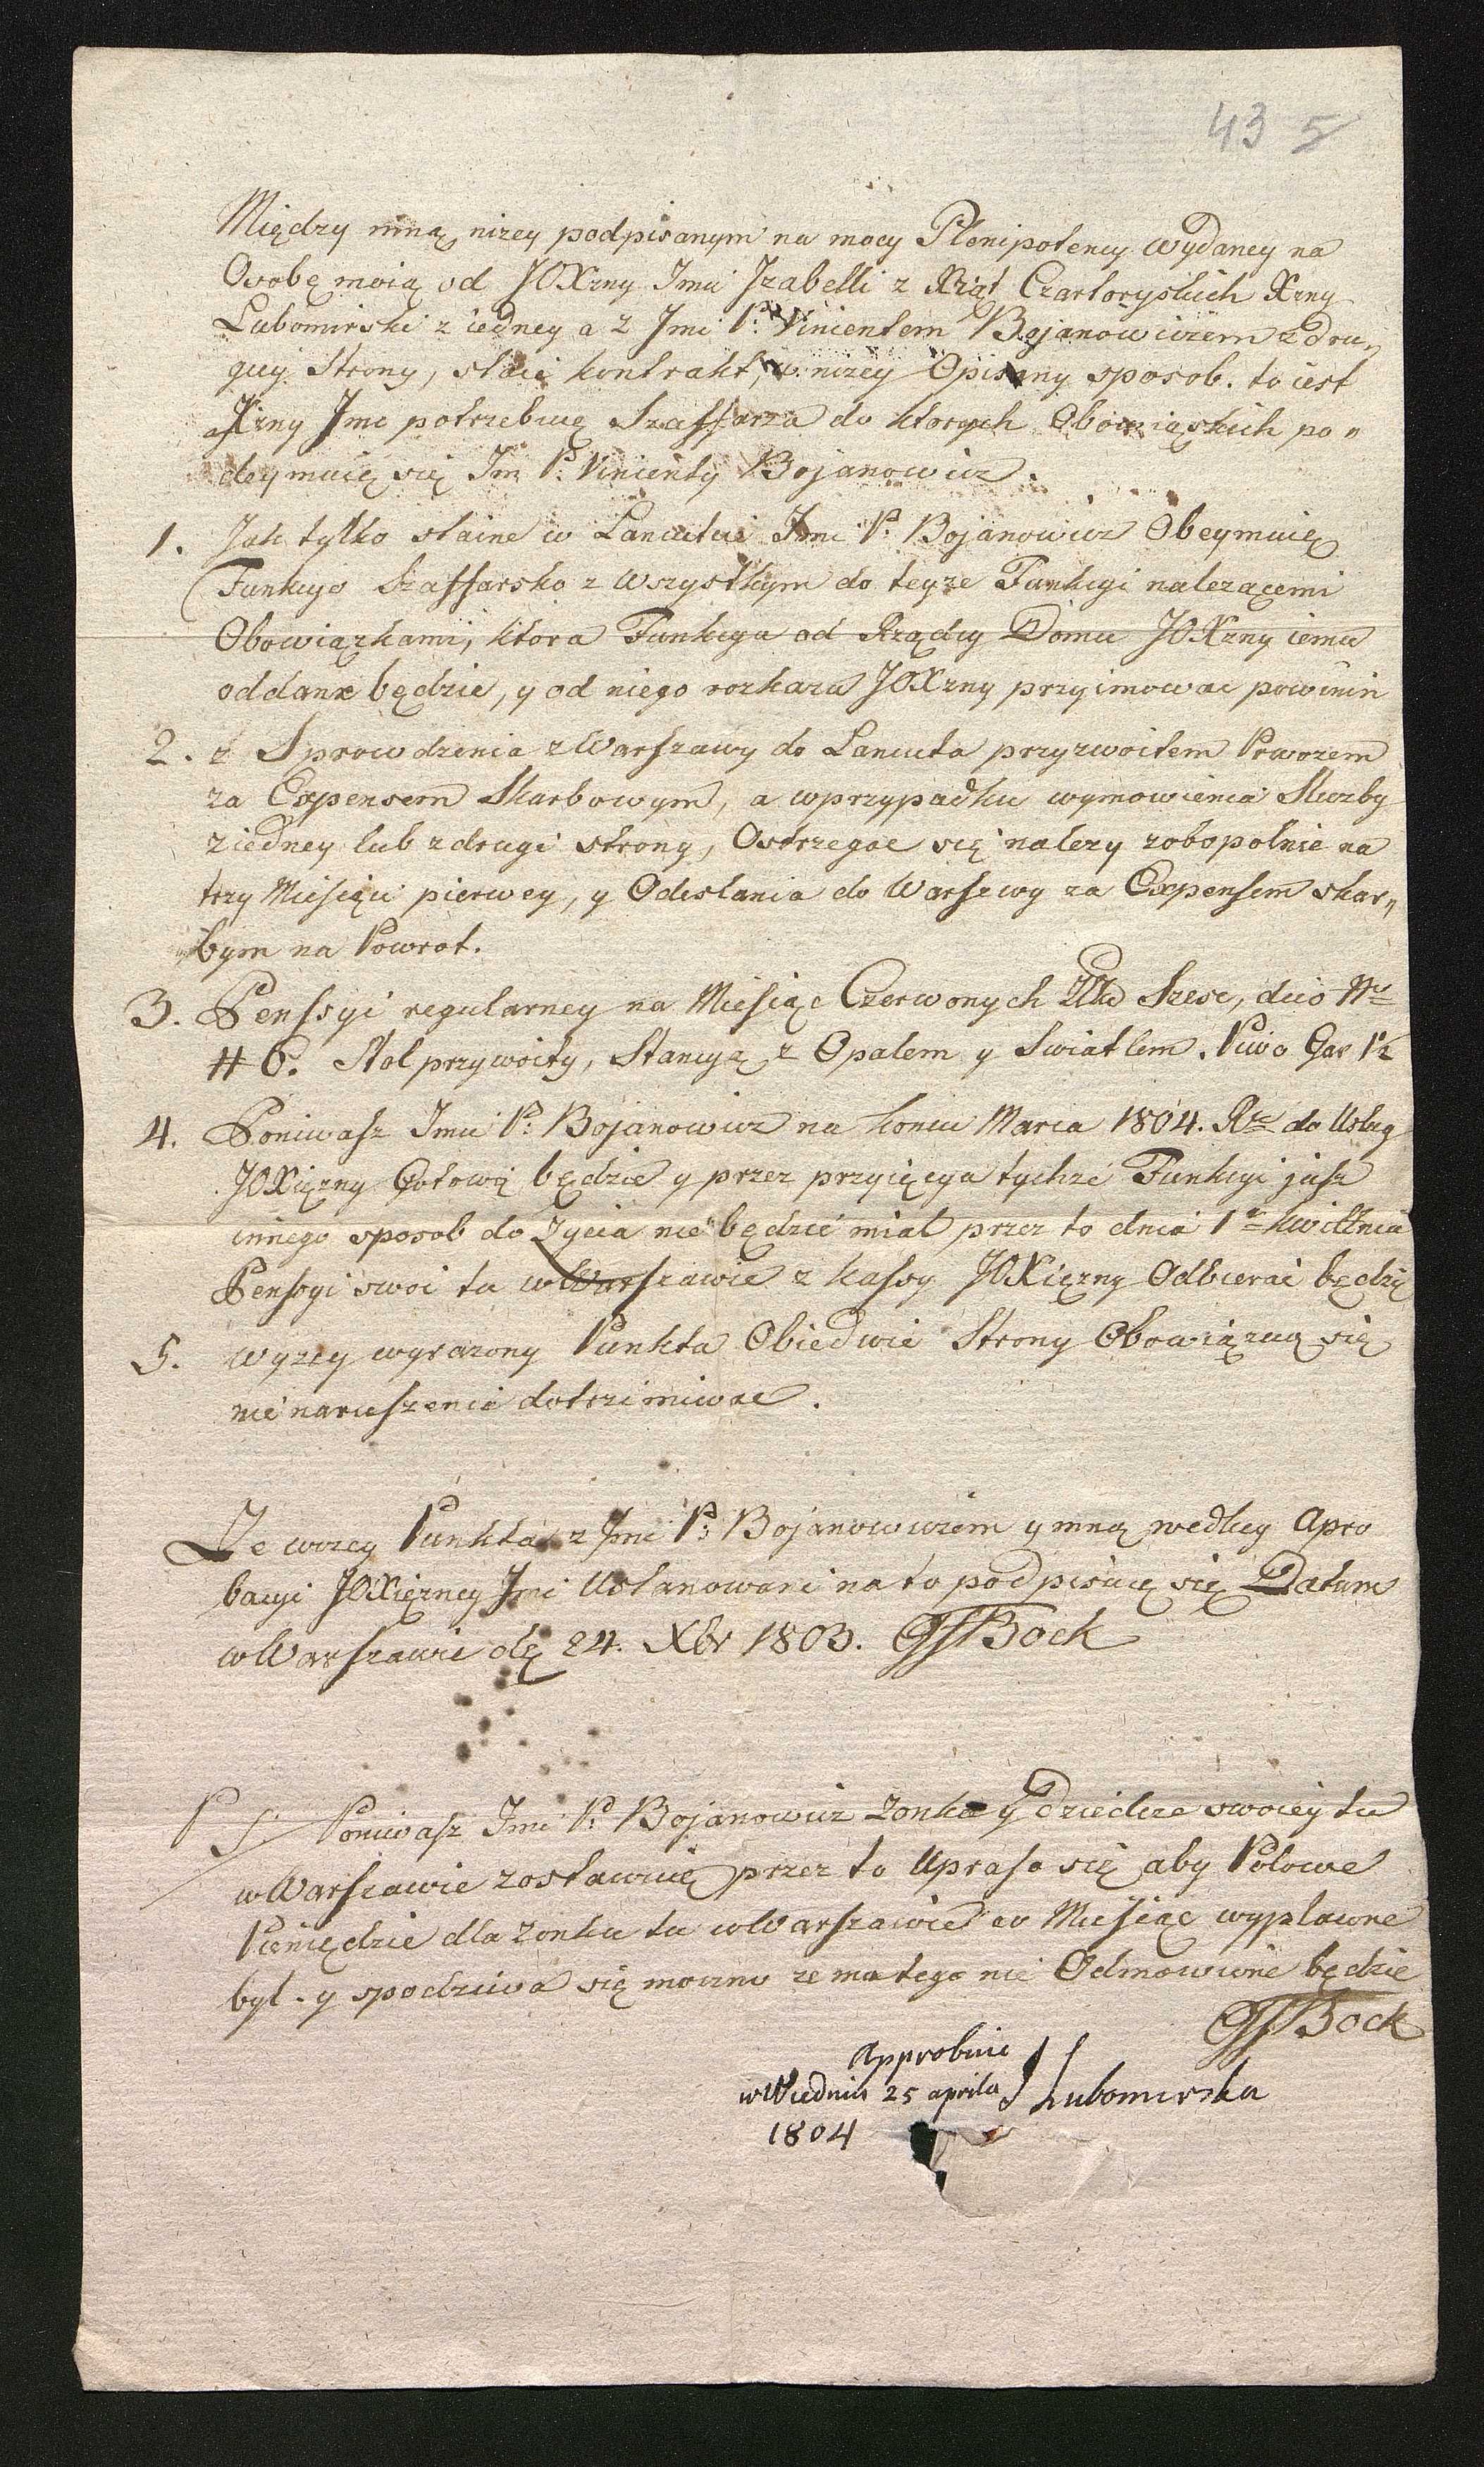 43 5
Między mną nizey podpisanym na mocy Plenipotency wydaney na
Osobę moią od JOXzny Jmci Jzabelli z Xiąt Czartoryskich Xzny
Lubomirski z iedney a z Jmci P: Vincentem Bojanowizem z dru„
giey Strony, staie kontrakt, w nizey Opisany sposob. to iest
Xzny Jmc potrzebuię Szaffarza do ktorych Obowiąskich po„
deymuię się Jm P: Vincenty Bojanowicz.
1. Jak tylko staine w Lancutu Jmc P: Bojanowicz Obeymuię
Funkcyo Szaffarsko z Wszystkym do teyze Funkcyi nalezącemi
Obowiązkami, ktora Funkcya od Rządcy Domu JOXzny iemu
oddane będzie, y od niego rozkazu JOXzny przyimowac powinin
2. z Sprowdzenia z Warszawy do Lancuta przyzwoitem Powozem
za Expensem Skarbowym, a wprzypadku wymowienia Sluzby
z iedney lub z drugi strony, Ostrzegac się nalezy zobopolnie na
trzy Miesięci pierwey, y Odeslania do Warszwy za Expensem skar„
bym na Powrot.
3. Penssyi regularney na Miesiąc Czerwonych Złł Szesc, dcio Nro
# 6. Stol przywoity, Stancyą z Opalem y Swiatlem. Piwo Gar 1½
4. Poniwasz Jmci P: Bojanowicz na koncu Marca 1804. Rt do Uslug
JOXięzny Gotowi będzie y przez przyięcya tychze Funkcyi jusz
innego sposob do Zycia nie będzie mial przez to dnia 1o kwittnia
Penssyi swoi tu w Warszawie z kassy JOXięzny Odbierai będzię
5. wyzey wyrazony Punkta Obiedwie Strony Obowiązuią się
nie naruszenie dotrzimiwac.
Ze wzey Punkta z Jmci P: Bojanowizem y mną wedlug Apro
bacyi JOXięzney Jmci Ustanowani na to podpisuię się Datum
w Warszawie dę 24. Xbr 1803. GFBock
P S. Poniwasz Jmci P: Bojanowicz Zonke y Dziedze swoiey tu
w Warszawie zostawuię przez to Upraso się aby Polowe
Pieniędzie dla Zonku tu w Warszawie co Miesiąc wyplacone
byl. y spodziwa się moznu ze mu tego nie Odmowione będzie
GFBock
Approbuie
w Wiedniu 25 aprila J Lubomirska
1804